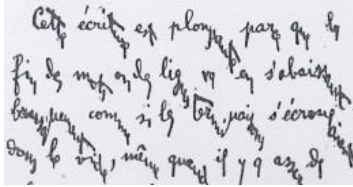 Cette écriture est plongeante parce que la
fin des mots ou des lignes va en s'abaissant
beaucoup, comme si les terminaisons s'écroulaient
dans le vide, même quand il y a assez de